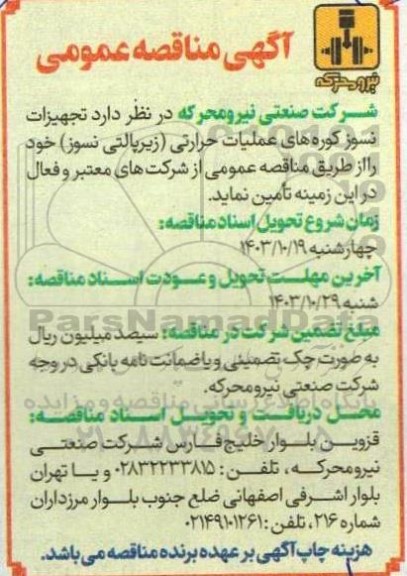 آگهی مناقصه عمومی
نیرومحرکه
شرکت صنعتی نیرومحرکه در نظر دارد تجهیزات
نسوز کوره‌های عملیات حرارتی (زیرپالتی نسوز) خود
رااز طریق مناقصه عمومی از شرکت های معتبر و فعال
در این زمینه تأمین نماید.
زمان شروع تحویل اسناد مناقصه:
چهارشنبه ۱۴۰۳/۱۰/۱۹
آخرین مهلت تحویل و عودت اسناد مناقصه:
شنبه ۱۴۰۳/۱۰/۲۹
مبلغ تضمین شرکت در مناقصه: سیصد میلیون ریال
به صورت چک تضمینی و یا ضمانت نامه بانکی در وجه
شرکت صنعتی نیرومحرکه.
محل دریافت و تحویل اسناد مناقصه:
قزوین بلوار خلیج فارس شرکت صنعتی
نیرومحرکه، تلفن: ۰۲۸۳۲۲۳۳۸۱۵ و یا تهران
بلوار اشرفی اصفهانی ضلع جنوب بلوار مرزداران
شماره ۲۱۶، تلفن: ۰۲۱۴۹۱۰۱۲۶۱
هزینه چاپ آگهی بر عهده برنده مناقصه می باشد.
ParsNamadData
پایگاه اطلاع رسانی مناقصه و مزایده